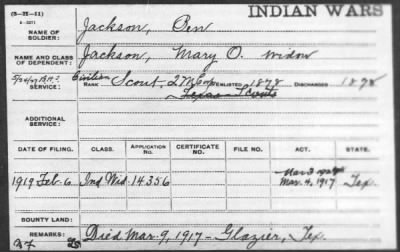 (3—H—11)
INDIAN WARS
NAME OF SOLDIER: Jackson, Ben
NAME AND CLASS OF DEPENDENT: Jackson, Mary O. widow
SERVICE: Civilian RANK Scout, ENLISTED 1878 DISCHARGED 1878
Texas Scouts
ADDITIONAL SERVICE:
DATE OF FILING. CLASS. APPLICATION NO. CERTIFICATE NO. FILE NO. ACT. STATE.
1919 Feb-6 Ind. Wid. 14356 Mar. 4, 1917 Tex.
BOUNTY LAND:
REMARKS: Died Mar. 9, 1917 - Glazier, Tex.